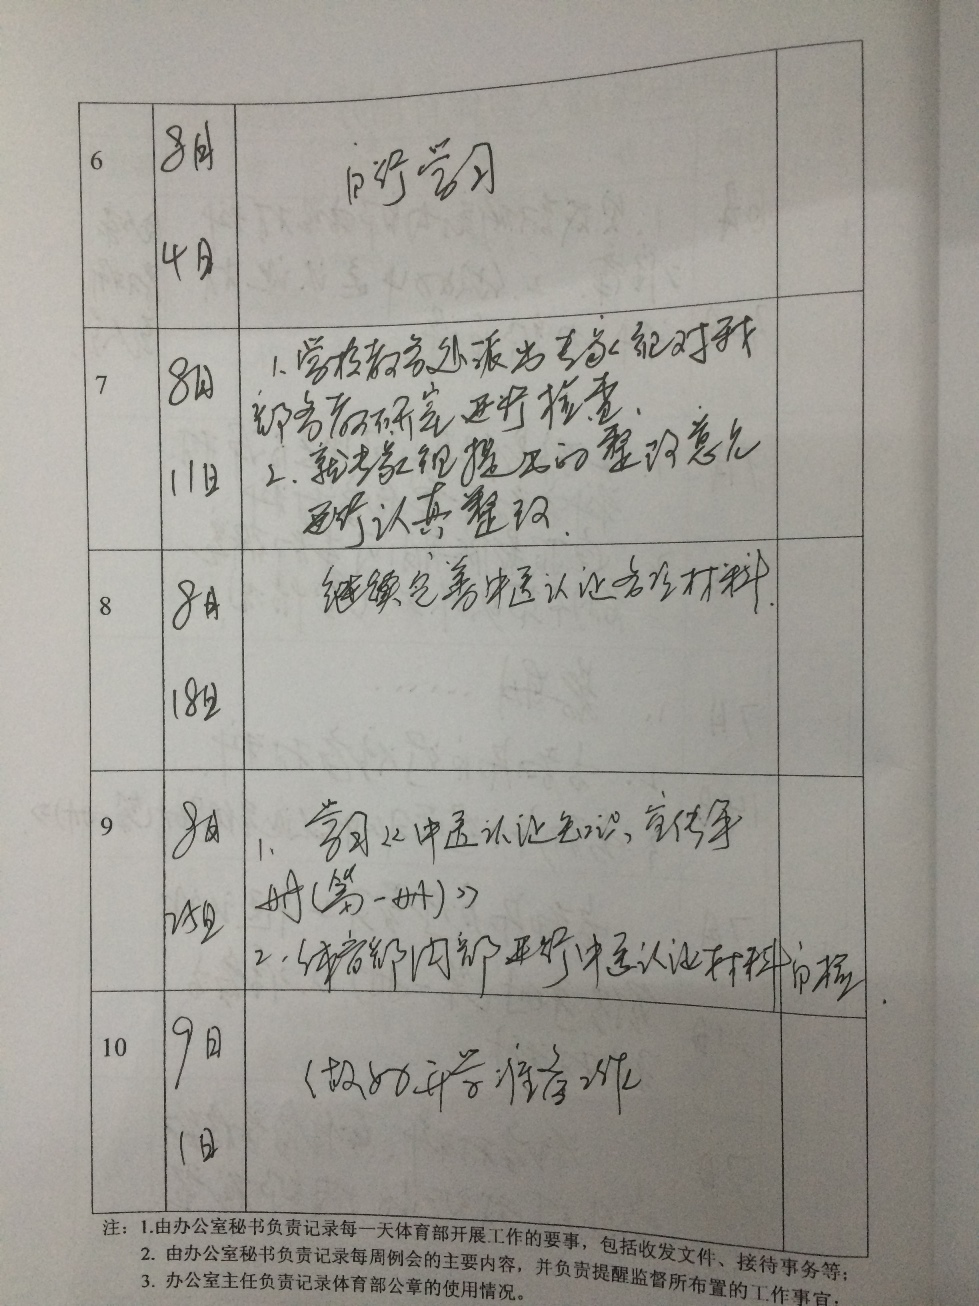 6
8月
4日
自行学习
7
8月
11日
1、学校教务处派出专家组对我
部各教研室进行检查.
2、就专家组提出的整改意见
进行认真整改.
8
8月
18日
继续完善中医认证各项材料.
9
8月
25日
1、学习《中医认证知识、宣传手
册(第一册)》
2、体育部内部进行中医认证材料自检.
10
9月
1日
做好开学准备工作
注：1.由办公室秘书负责记录每一天体育部开展工作的要事，包括收发文件、接待事务等；
2. 由办公室秘书负责记录每周例会的主要内容，并负责提醒监督所布置的工作事宜；
3. 办公室主任负责记录体育部公章的使用情况。